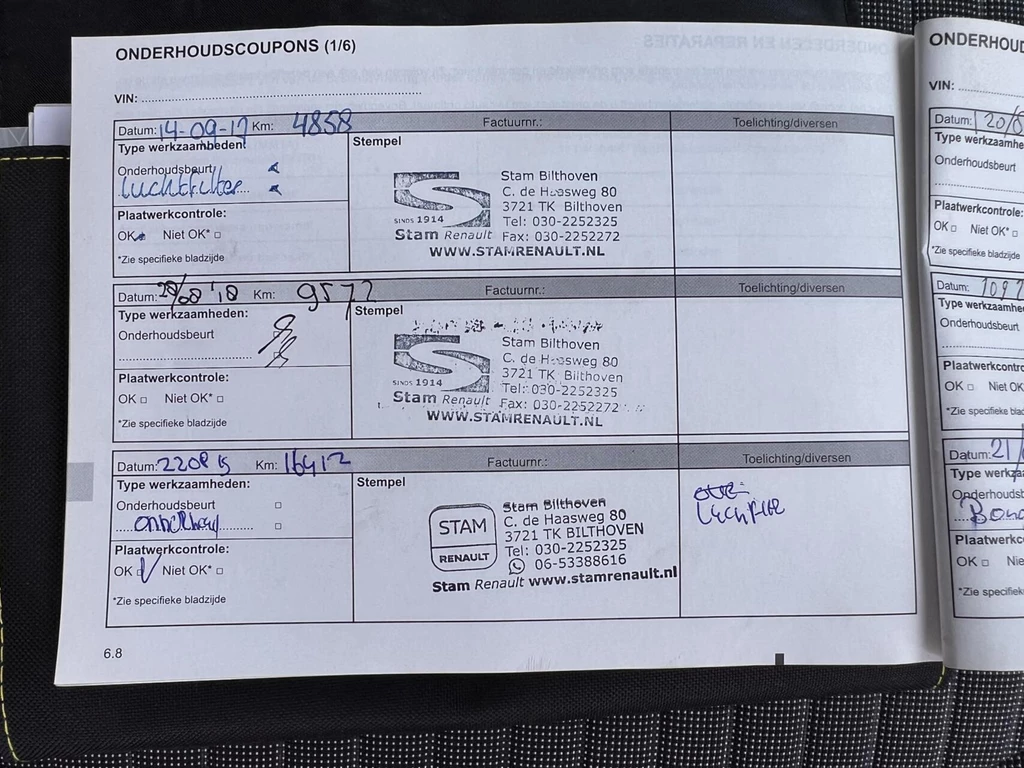 ONDERHOUDSCOUPONS (1/6)
VIN:
Datum: 14-09-17 Km: 4858 Factuurnr.: Toelichting/diversen
Type werkzaamheden: Stempel
Onderhoudsbeurt
Luchtfilter
Plaatwerkcontrole:
OK Niet OK*
*Zie specifieke bladzijde
Stam Bilthoven
C. de Haasweg 80
3721 TK Bilthoven
Tel: 030-2252325
Fax: 030-2252272
SINDS 1914
Stam Renault
WWW.STAMRENAULT.NL
Datum: 28/08 '18 Km: 9572 Factuurnr.: Toelichting/diversen
Type werkzaamheden: Stempel
Onderhoudsbeurt
Plaatwerkcontrole:
OK Niet OK*
*Zie specifieke bladzijde
Stam Bilthoven
C. de Haasweg 80
3721 TK Bilthoven
Tel: 030-2252325
Fax: 030-2252272
SINDS 1914
Stam Renault
WWW.STAMRENAULT.NL
Datum: Km: 16412 Factuurnr.: Toelichting/diversen
Type werkzaamheden: Stempel
Onderhoudsbeurt
Plaatwerkcontrole:
OK Niet OK*
*Zie specifieke bladzijde
STAM
RENAULT
Stam Bilthoven
C. de Haasweg 80
3721 TK BILTHOVEN
Tel: 030-2252325
06-53388616
Stam Renault www.stamrenault.nl
6.8
ONDERHOUD
VIN:
Datum: 20/0
Type werkzaamhe
Onderhoudsbeurt
Plaatwerkcontrole:
OK Niet OK*
*Zie specifieke bladzijde
Datum:
Type werkzaamhe
Onderhoudsbeurt
Plaatwerkcontro
OK Niet OK
*Zie specifieke blad
Datum: 21/
Type werkza
Onderhoudsb
Plaatwerkc
OK Nie
*Zie specifiek